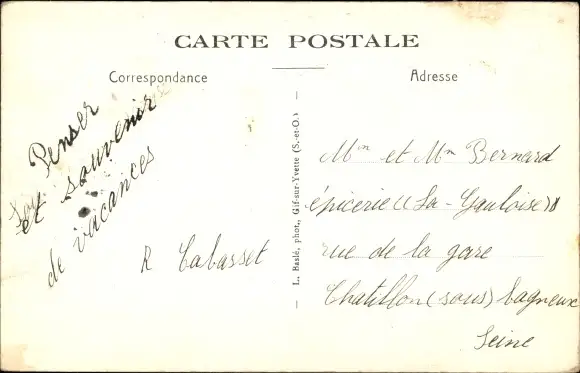 CARTE POSTALE
Correspondance
Adresse
Penser
et souvenir
de vacances
R Cabasset
L. Baslé, phot., Gif-sur-Yvette (S.-et-O.)
Mm et Mm Bernard
épicerie (La-Gauloise)
rue de la gare
Chatillon (sous) Bagneux
Seine